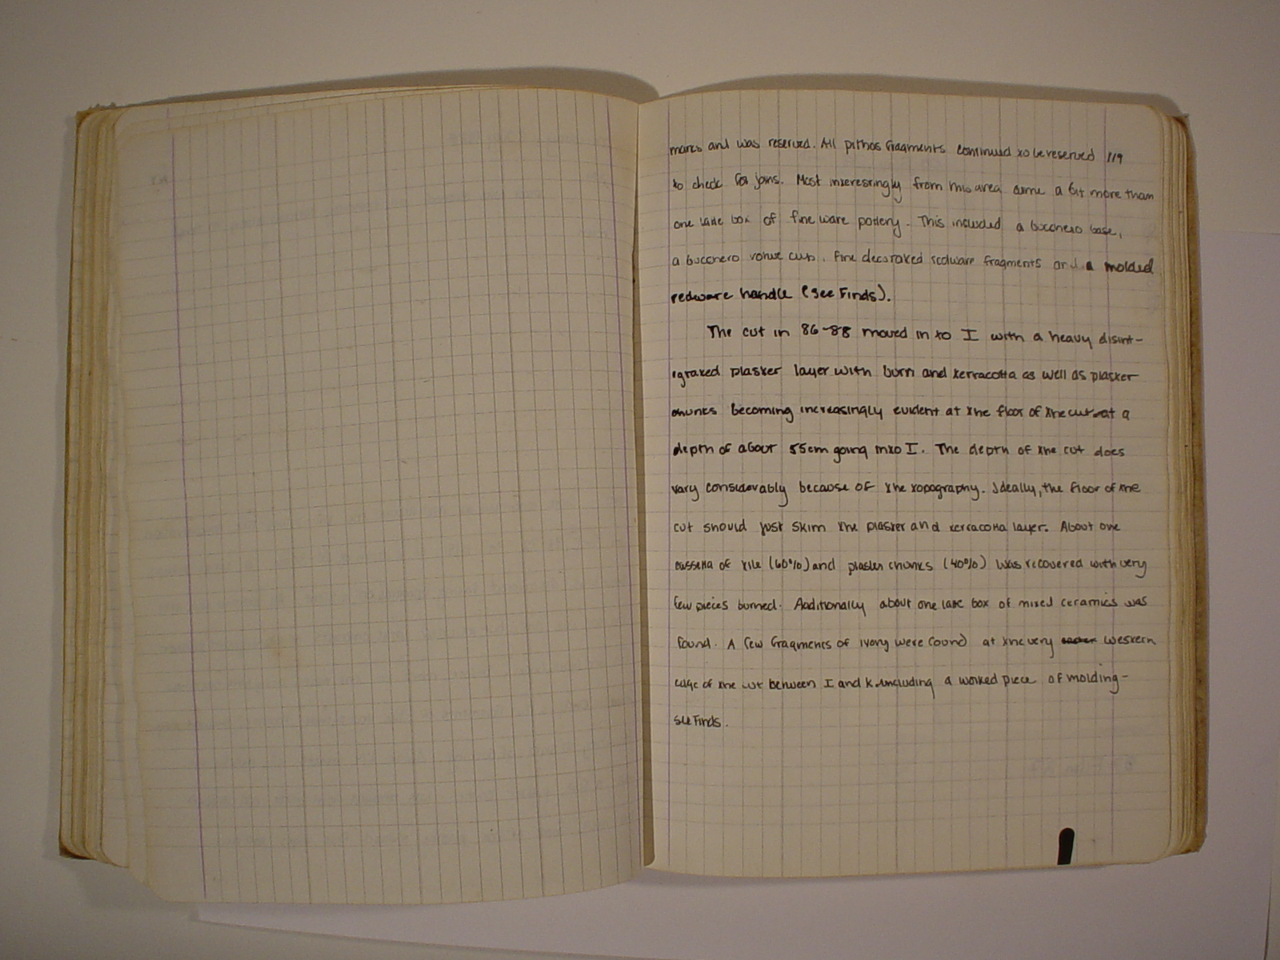 marks and was reserved. All pithos fragments continued to be reserved 119
to check for joins. Most interestingly from this area came a bit more than
one late box of fine ware pottery. This included a bucchero base,
a bucchero votive cup, fine decorated redware fragments and a molded
redware handle (see Finds).
The cut in 86-88 moved in to I with a heavy disint-
igrated plaster layer with burn and terracotta as well as plaster
chunks becoming increasingly evident at the floor of the cut at a
depth of about 55cm going into I. The depth of the cut does
vary considerably because of the topography. Ideally, the floor of the
cut should just skim the plaster and terracotta layer. About one
cassetta of tile (60%) and plaster chunks (40%) was recovered with very
few pieces burned. Additionally about one late box of mixed ceramics was
found. A few fragments of ivory were found at the very western
edge of the cut between I and K including a worked piece of molding-
see Finds.